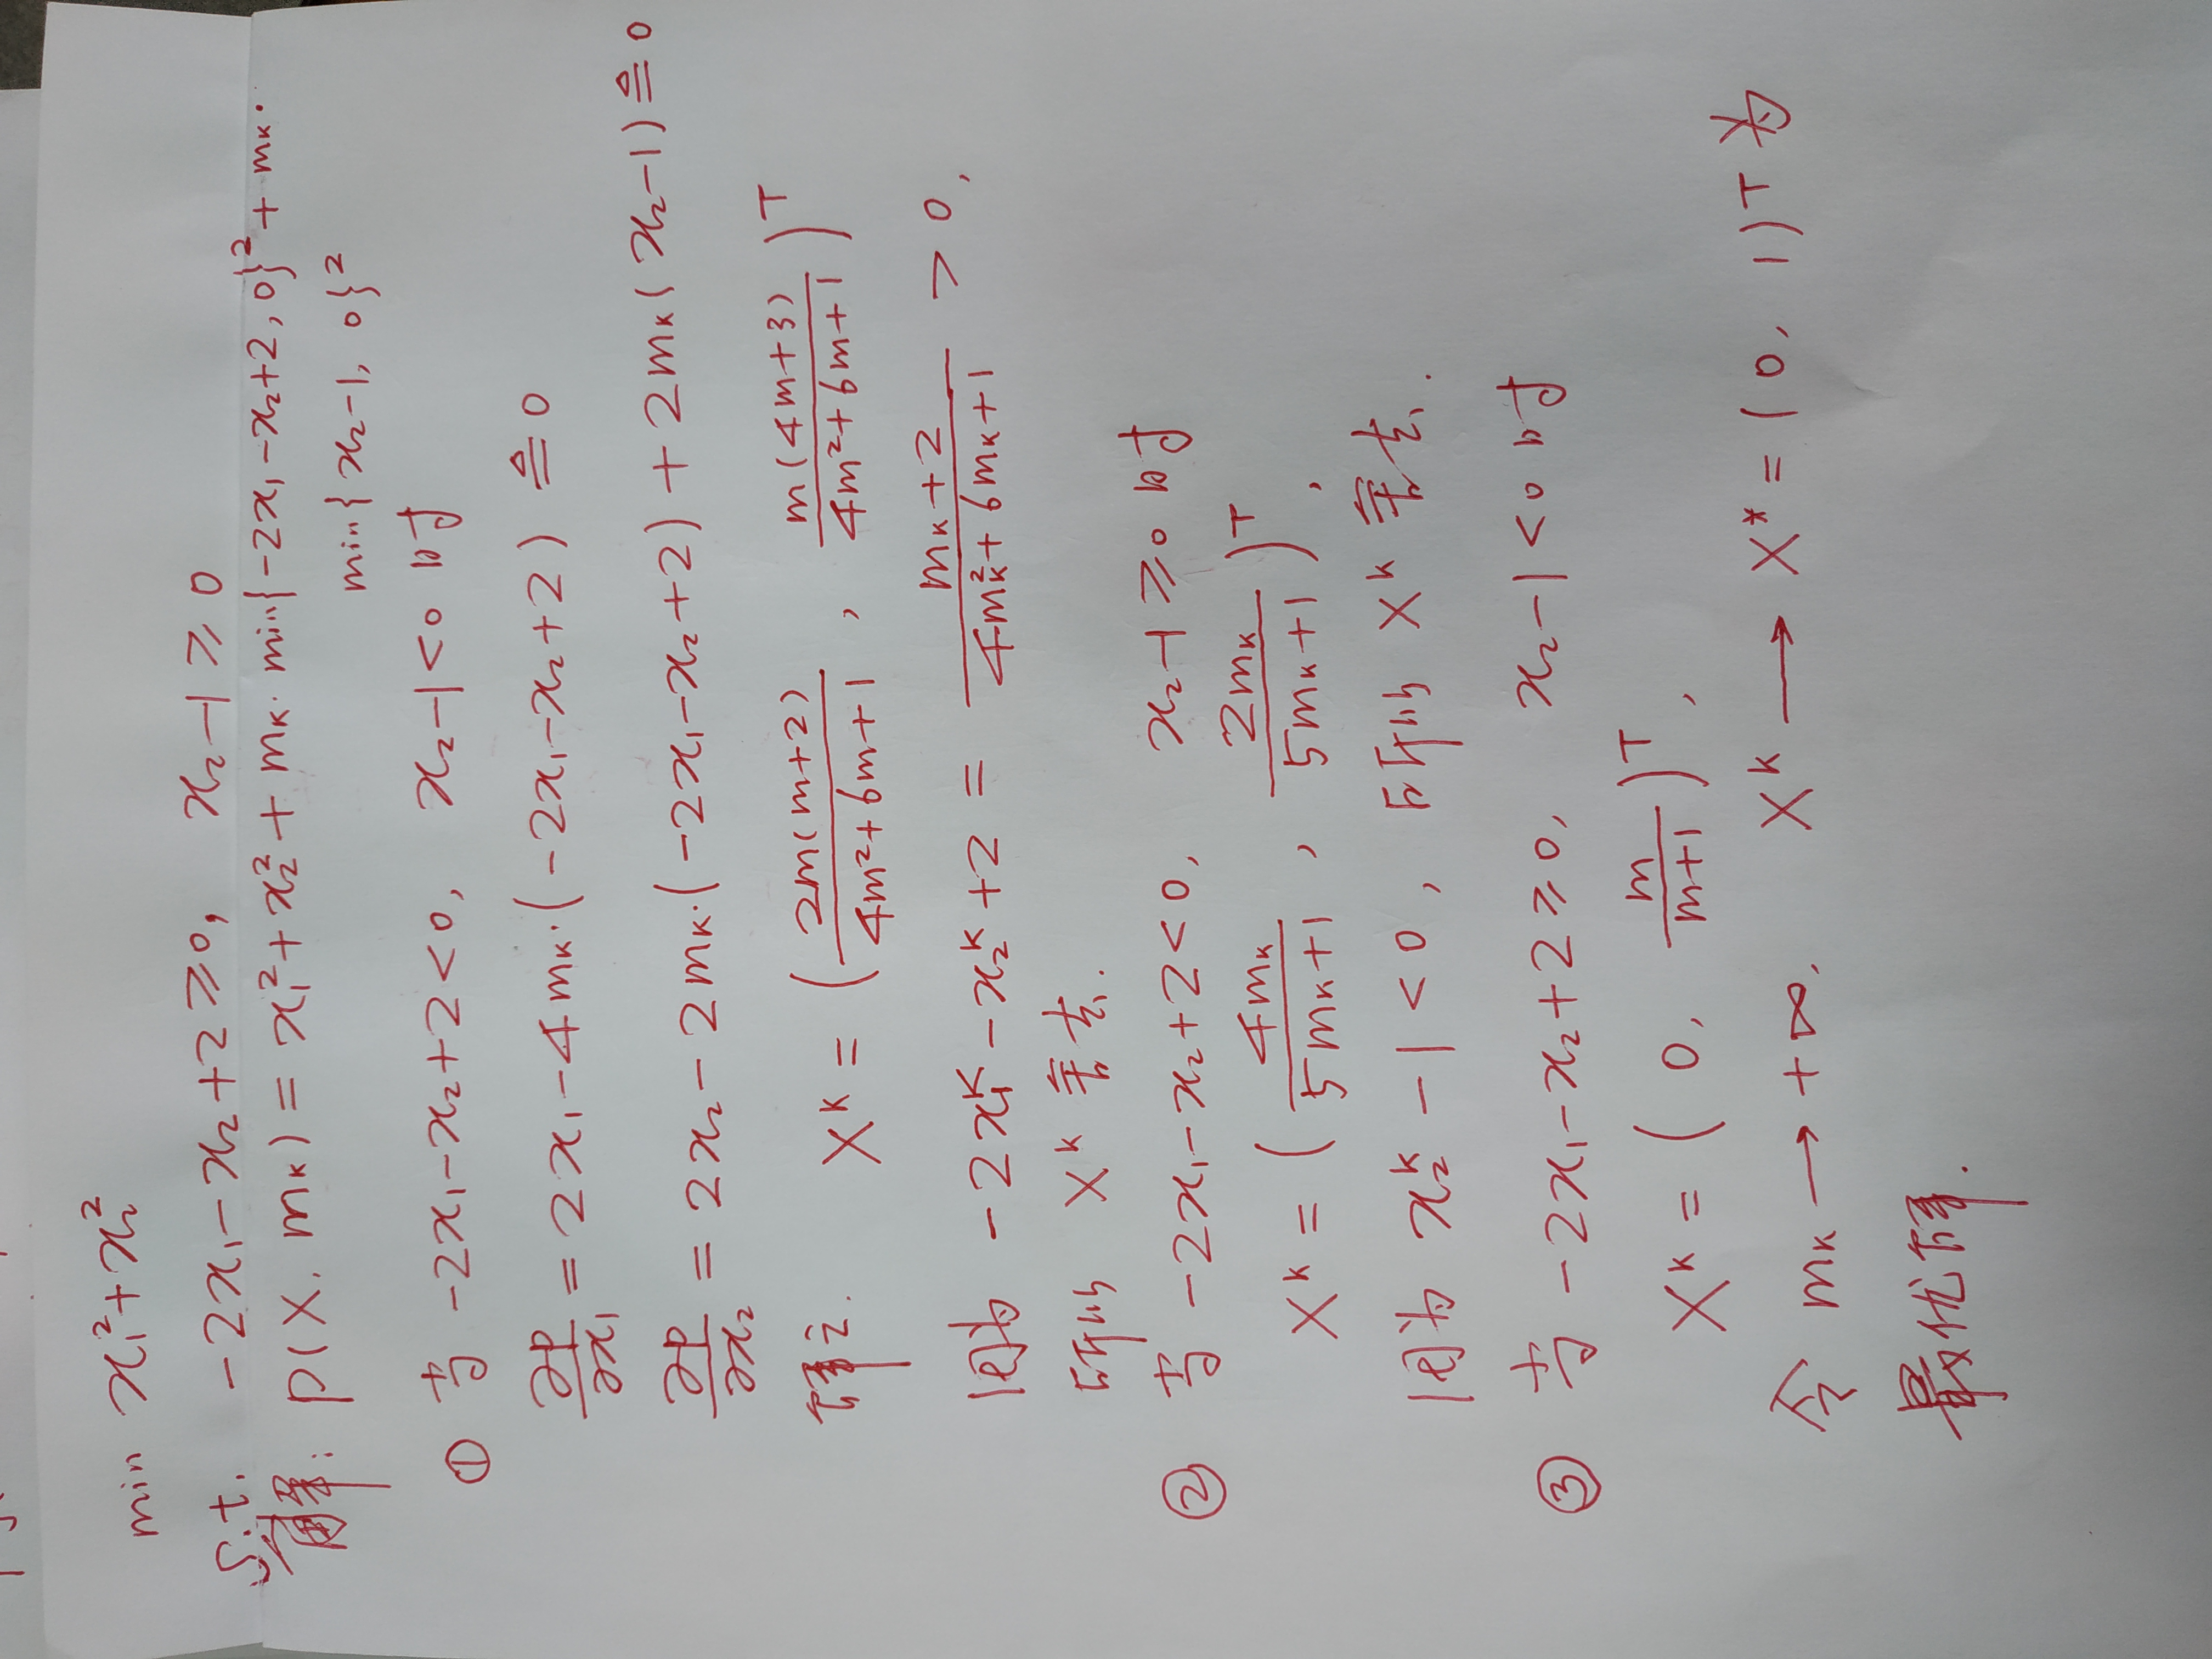 min x₁²+x₂²
s.t. -2x₁-x₂+2≥0, x₂-1≥0
解: p(X, mₖ) = x₁²+x₂²+mₖ·min{-2x₁-x₂+2, 0}²+mₖ·
min{x₂-1, 0}²
① 当 -2x₁-x₂+2<0, x₂-1<0 时
∂p/∂x₁ = 2x₁-4mₖ·(-2x₁-x₂+2) ≜ 0
∂p/∂x₂ = 2x₂-2mₖ·(-2x₁-x₂+2)+2mₖ(x₂-1) ≜ 0
解之. Xᵏ = (2m(m+2)/(4m²+6m+1), m(4m+3)/(4m²+6m+1))ᵀ
因为 -2x₁ᵏ-x₂ᵏ+2 = (mₖ+2)/(4mₖ²+6mₖ+1) > 0,
所以 Xᵏ 舍去.
② 当 -2x₁-x₂+2<0, x₂-1≥0 时
Xᵏ = (4mₖ/(5mₖ+1), 2mₖ/(5mₖ+1))ᵀ,
因为 x₂ᵏ-1<0, 所以 Xᵏ 舍去.
③ 当 -2x₁-x₂+2≥0, x₂-1<0 时
Xᵏ = (0, m/(m+1))ᵀ,
令 mₖ→+∞. Xᵏ→X* = (0, 1)ᵀ 为
最优解.